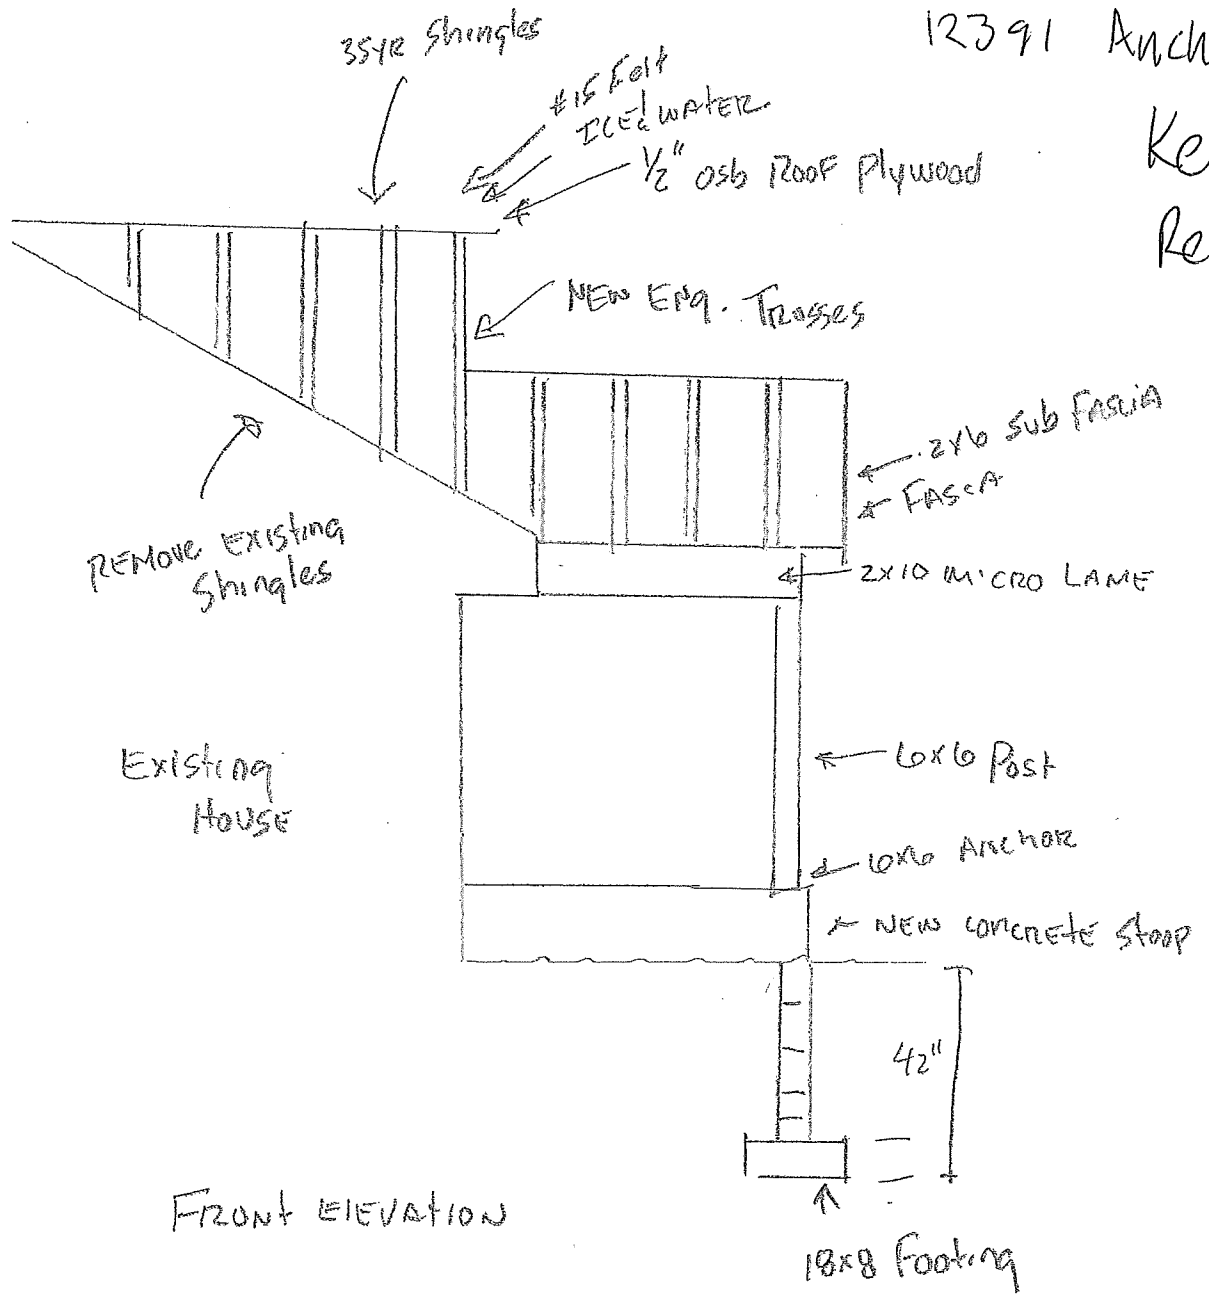 12391 Anch
Ke
Re
35YR Shingles
#15 Felt
ICE & WATER
1/2" OSb ROOF Plywood
NEW ENg. TRUSSES
2x6 SUb FASCiA
FASCA
REMOVE EXISTING
Shingles
2x10 MICRO LAME
Existing
HOUSE
6x6 Post
6x6 ANCHOR
NEW CONCRETE Stoop
42"
FRONt ElEVATION
18x8 Footing